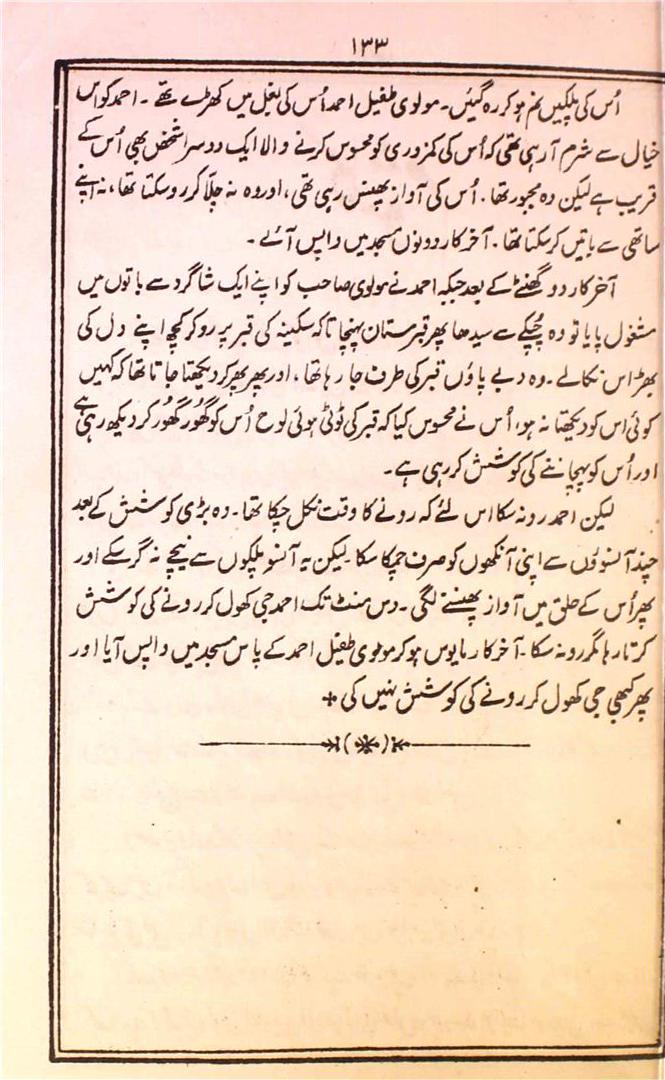 ۱۳۳
اُس کی پلکیں نم ہو کر رہ گئیں۔ مولوی طفیل احمد اُس کی بغل میں کھڑے تھے۔ احمد کو اس
خیال سے شرم آ رہی تھی کہ اُس کی کمزوری کو محسوس کرنے والا ایک دوسرا شخص بھی اُس کے
قریب ہے لیکن وہ مجبور تھا۔ اُس کی آواز پھنس رہی تھی، اور وہ نہ چلّا کر رو سکتا تھا، نہ اپنے
ساتھی سے باتیں کر سکتا تھا۔ آخر کار دونوں مسجد میں واپس آئے۔
آخر کار دو گھنٹے کے بعد جبکہ احمد نے مولوی صاحب کو اپنے ایک شاگرد سے باتوں میں
مشغول پایا تو وہ چُپکے سے سیدھا پھر قبرستان پہنچا تاکہ سکینہ کی قبر پر رو کر کچھ اپنے دل کی
بھڑاس نکالے۔ وہ دبے پاؤں قبر کی طرف جا رہا تھا، اور پھر پھر کر دیکھتا جاتا تھا کہ کہیں
کوئی اس کو دیکھتا نہ ہو، اُس نے محسوس کیا کہ قبر کی ٹوٹی ہوئی لوح اُس کو گھُور گھُور کر دیکھ رہی ہے
اور اُس کو پہچاننے کی کوشش کر رہی ہے۔
لیکن احمد رو نہ سکا اس لئے کہ رونے کا وقت نکل چکا تھا۔ وہ بڑی کوشش کے بعد
چند آنسوؤں سے اپنی آنکھوں کو صرف چمکا سکا لیکن یہ آنسو پلکوں سے نیچے نہ گر سکے اور
پھر اُس کے حلق میں آواز پھنسنے لگی۔ دس منٹ تک احمد جی کھول کر رونے کی کوشش
کرتا رہا مگر رو نہ سکا۔ آخر کار مایوس ہو کر مولوی طفیل احمد کے پاس مسجد میں واپس آیا اور
پھر کبھی جی کھول کر رونے کی کوشش نہیں کی +